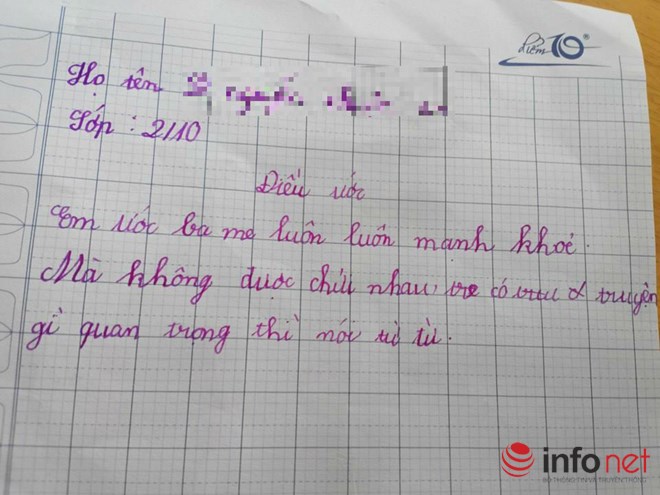 điểm 10
Họ tên
Lớp : 2/10
Điều ước
Em ước ba mẹ luôn luôn mạnh khoẻ.
Mà không được chửi nhau, có truyện
gì quan trọng thì nói từ từ.
infonet